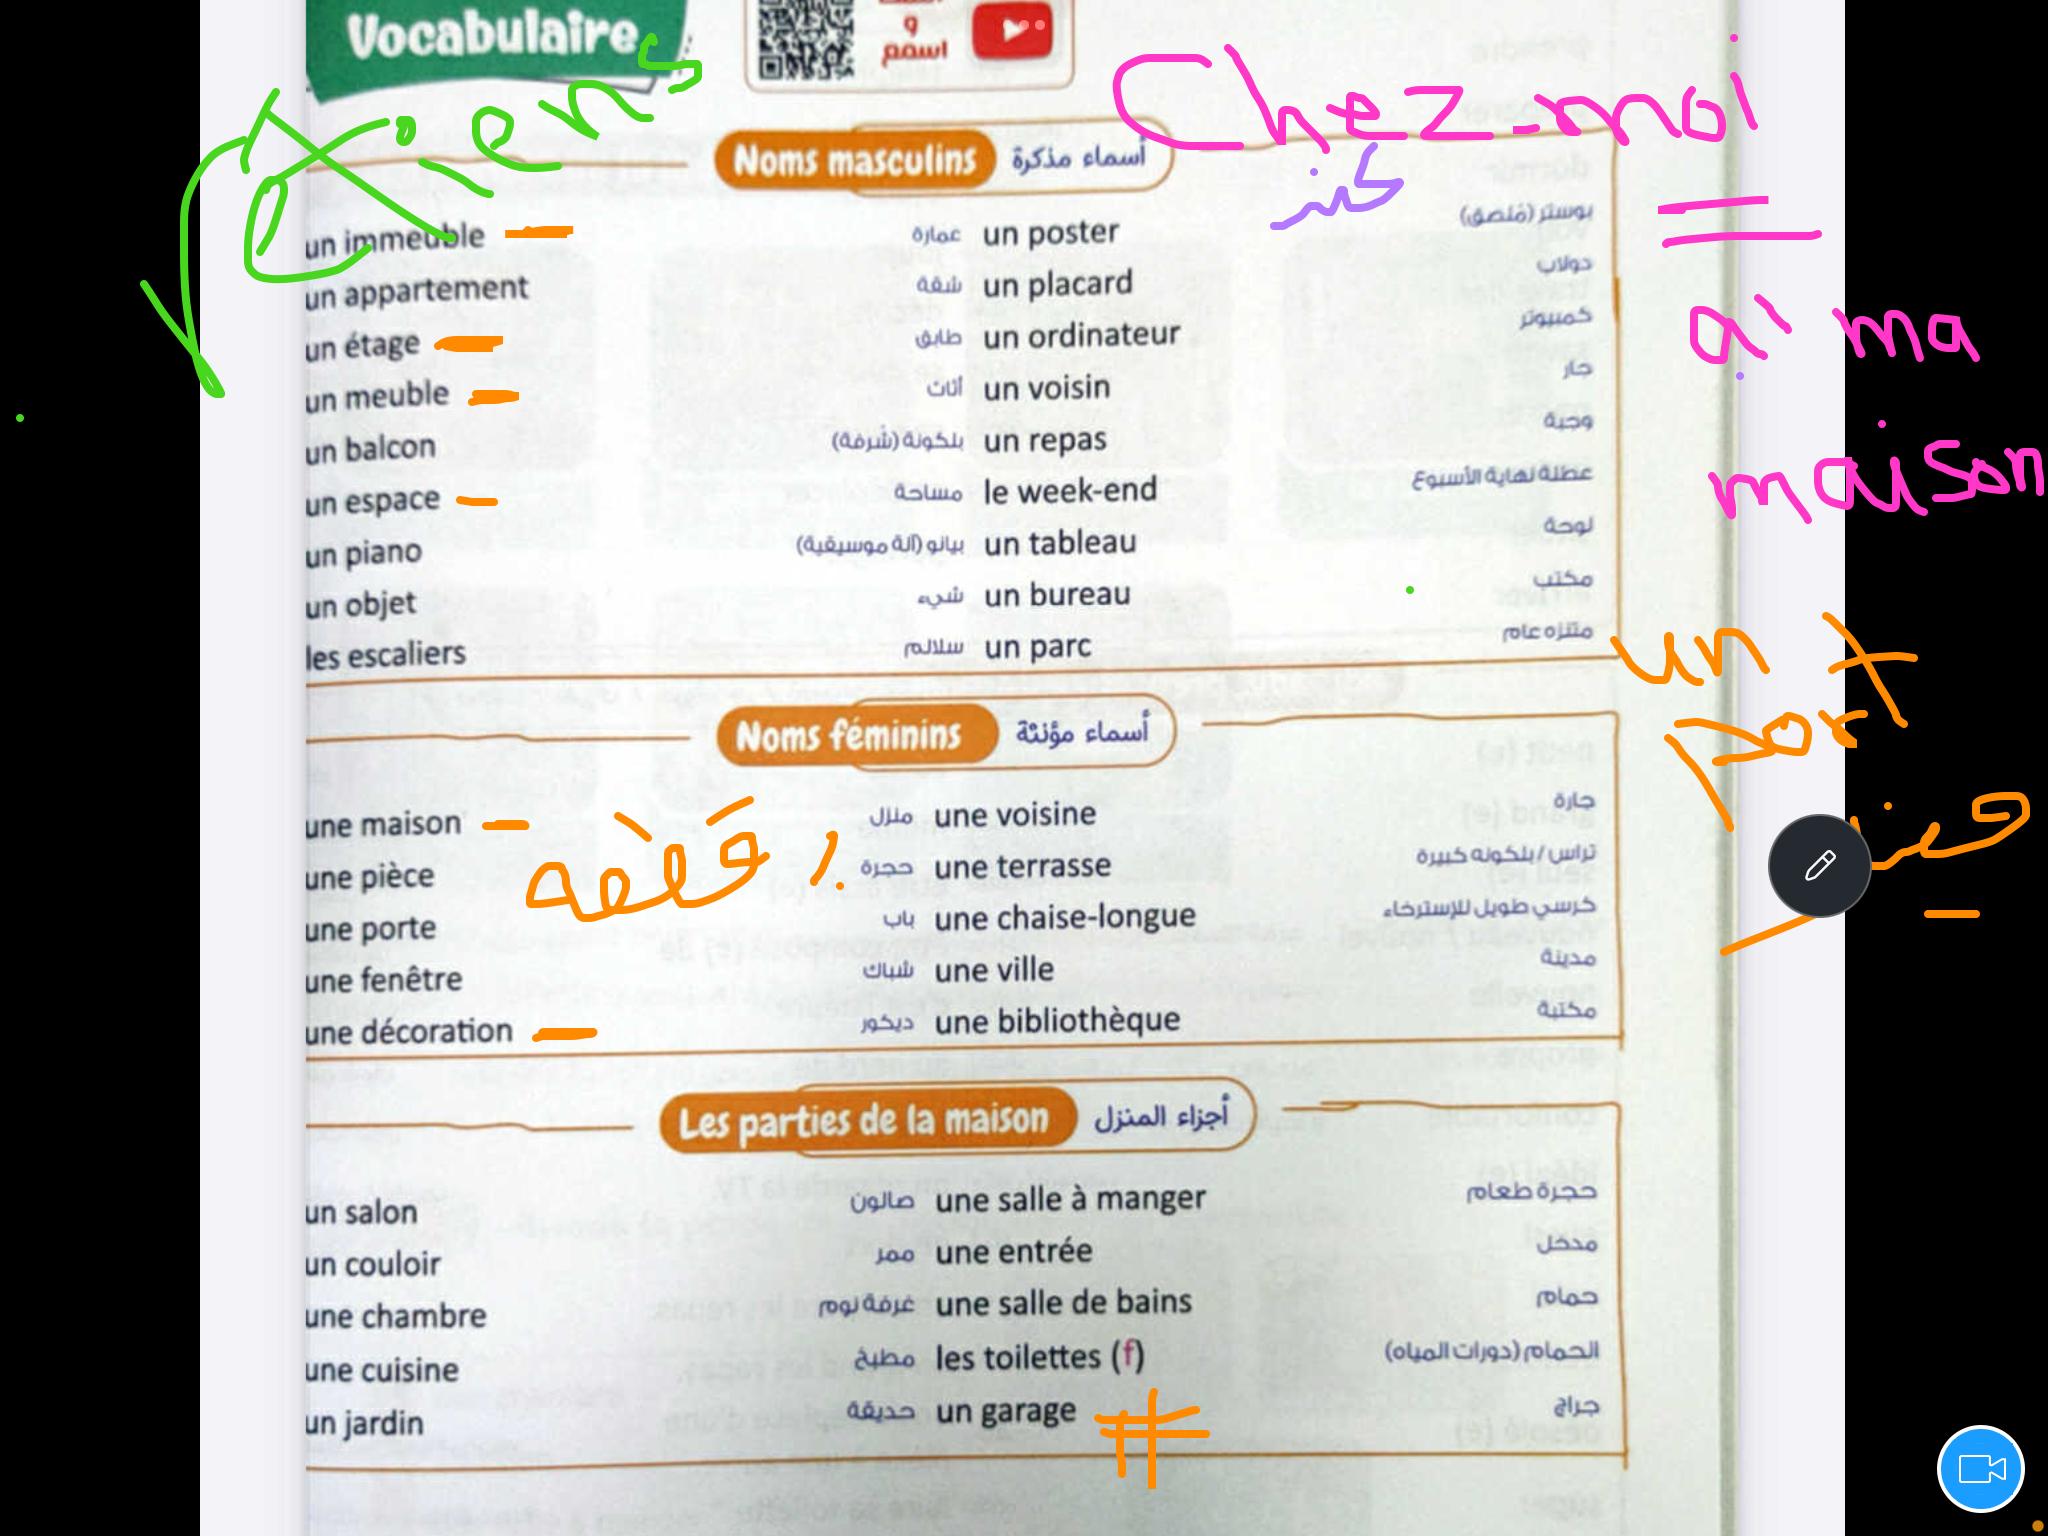 Vocabulaire
و
اسمع
Chez-moi
Noms masculins أسماء مذكرة
un immeuble عمارة un poster بوستر (مُلصق)
un appartement شقة un placard دولاب
un étage طابق un ordinateur كمبيوتر
un meuble أثاث un voisin جار
un balcon بلكونة (شُرفة) un repas وجبة
un espace مساحة le week-end عطلة نهاية الأسبوع
un piano بيانو (آلة موسيقية) un tableau لوحة
un objet شيء un bureau مكتب
les escaliers سلالم un parc متنزه عام
à ma
maison
un
Noms féminins أسماء مؤنثة
une maison منزل une voisine جارة
une pièce حجرة une terrasse تراس / بلكونه كبيرة
une porte باب une chaise-longue كرسي طويل للإسترخاء
une fenêtre شباك une ville مدينة
une décoration ديكور une bibliothèque مكتبة
Les parties de la maison أجزاء المنزل
un salon صالون une salle à manger حجرة طعام
un couloir ممر une entrée مدخل
une chambre غرفة نوم une salle de bains حمام
une cuisine مطبخ les toilettes (f) الحمام (دورات المياه)
un jardin حديقة un garage جراج